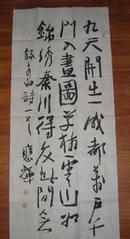 九天開出一成都萬户千
門入畫圖草樹雲山如
錦繡秦川得及此間無
錄李白詩一首 應輝